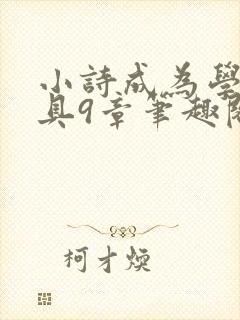 小詩成為學
具9章筆趣閣
柯才煥